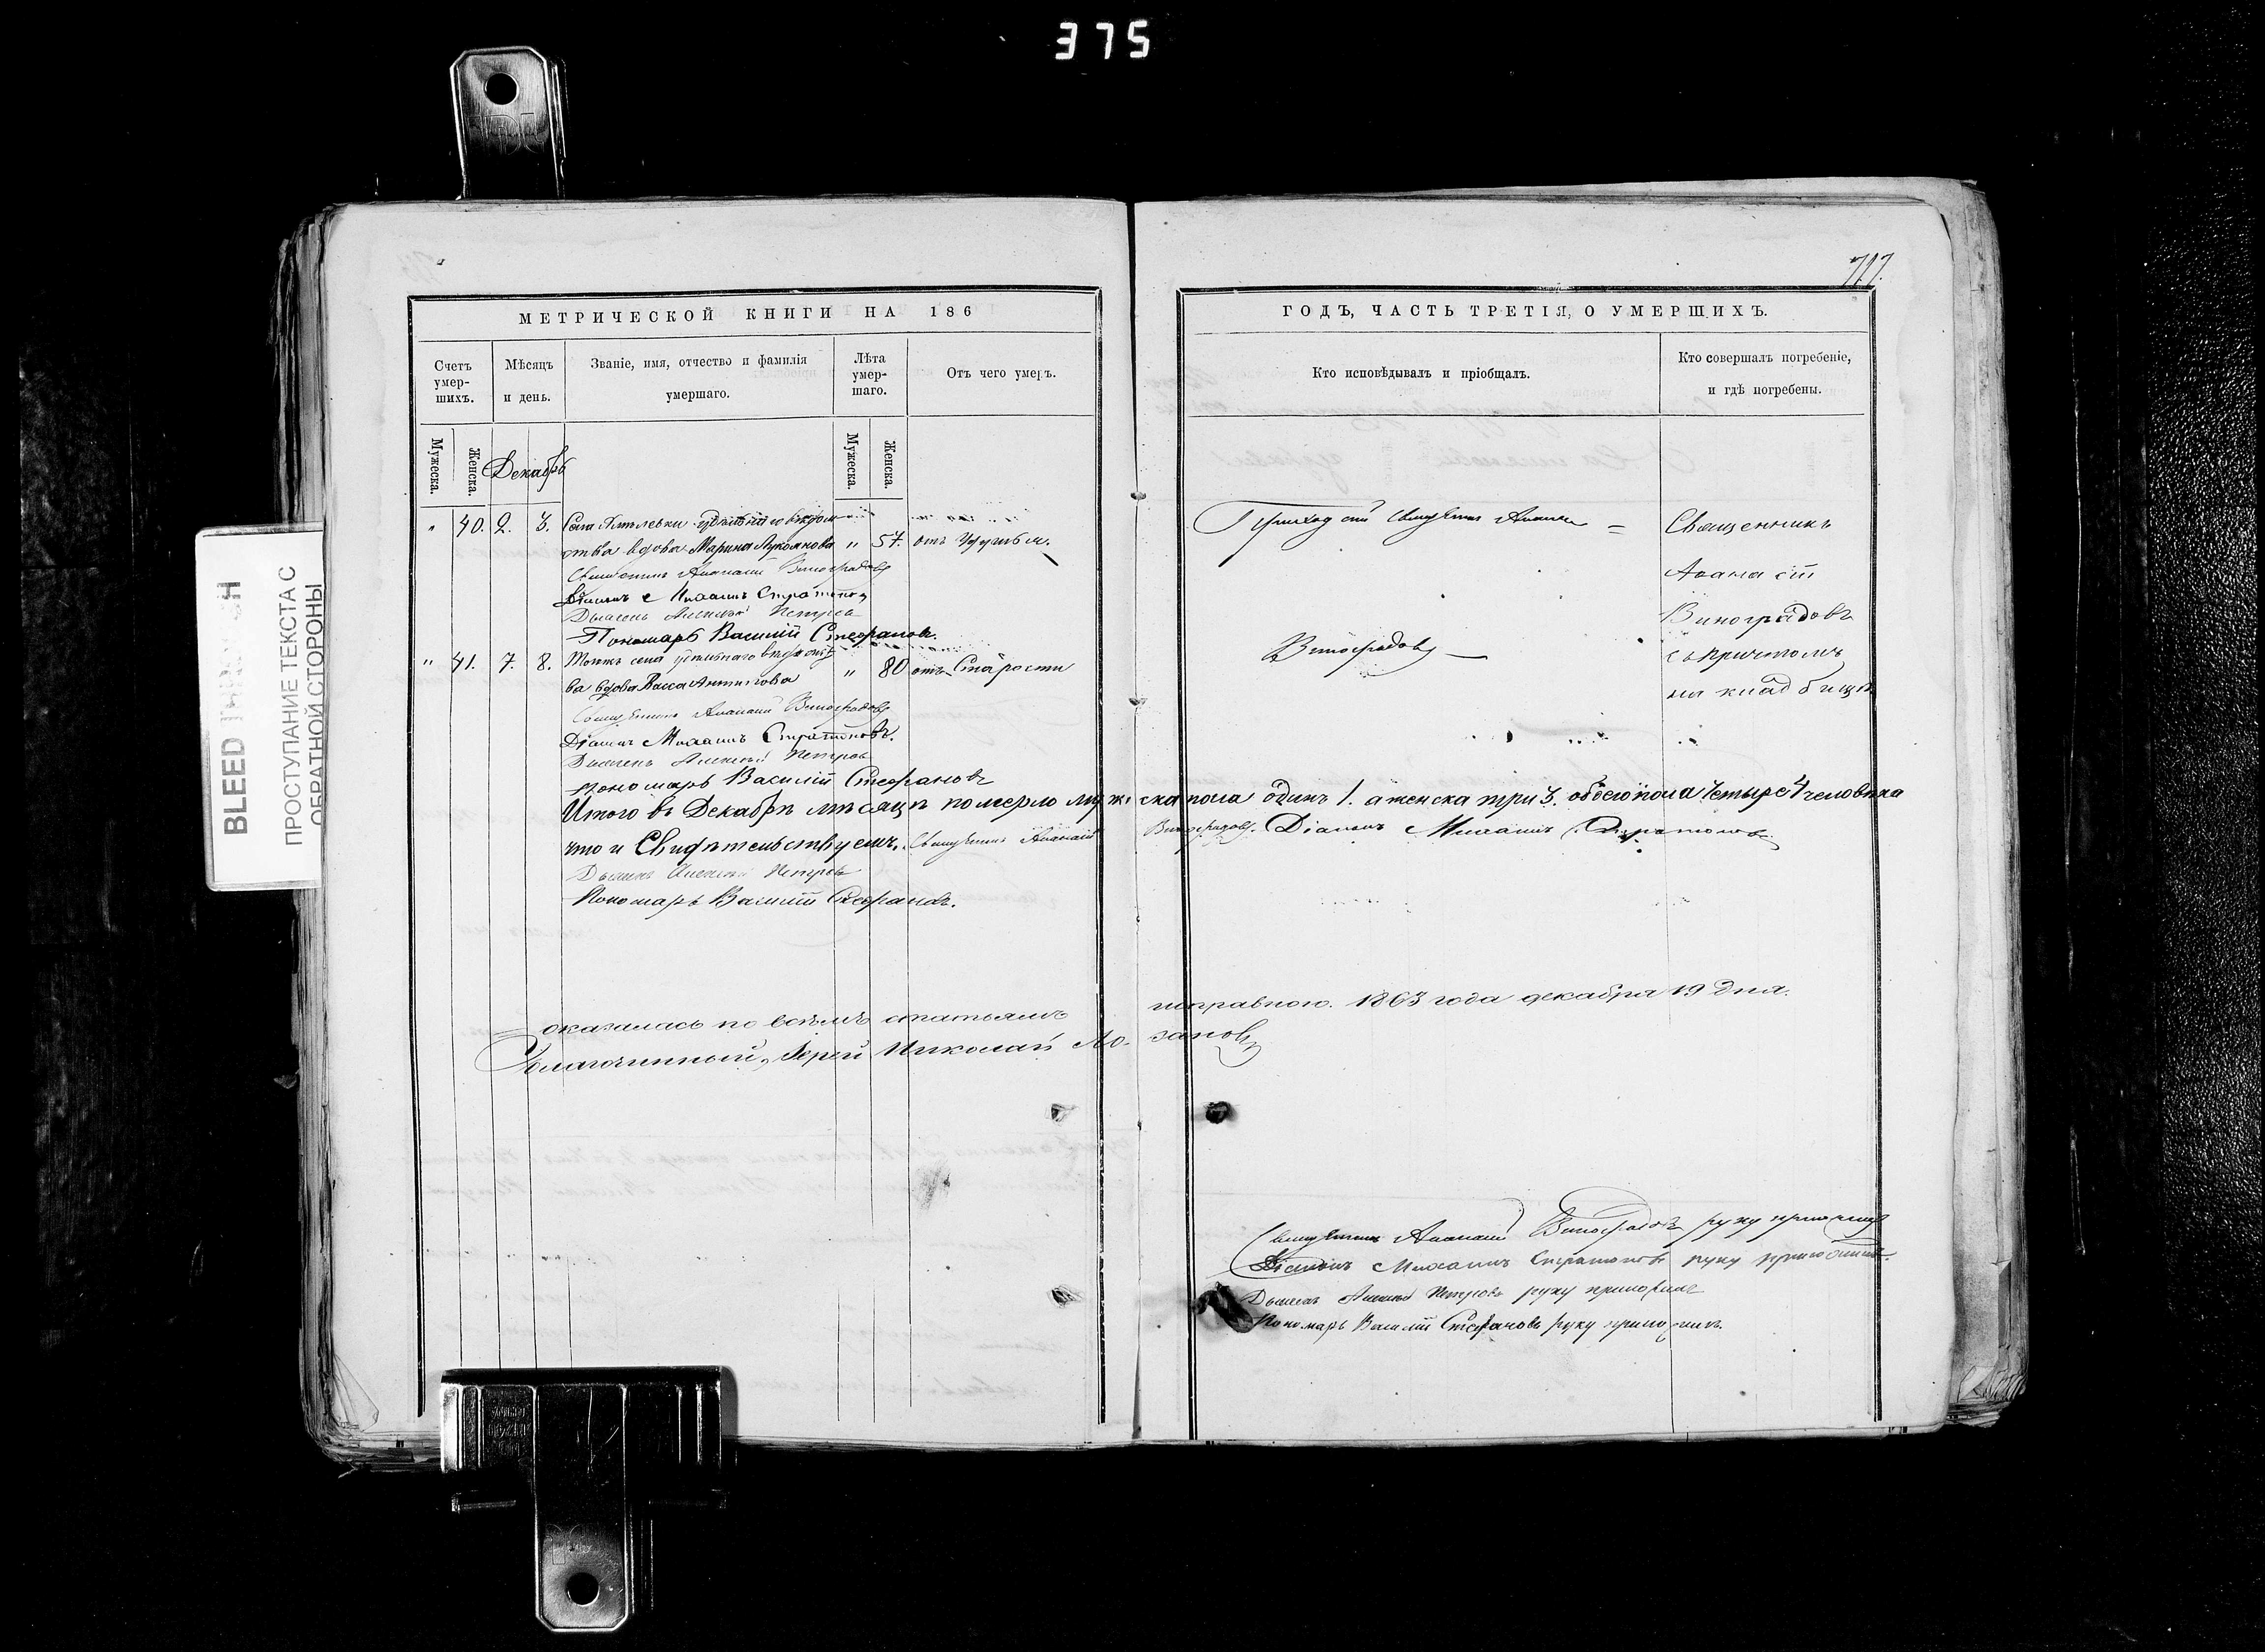 375
717.
BLEED THROUGH
ПРОСТУПАНИЕ ТЕКСТА С
ОБРАТНОЙ СТОРОНЫ
МЕТРИЧЕСКОЙ КНИГИ НА 186
Счетъ умер-шихъ.
Мѣсяцъ и день.
Званіе, имя, отчество и фамилія умершаго.
Лѣта умер-шаго.
Отъ чего умеръ.
Мужеска.
Женска.
Декабрь
Мужеска.
Женска.
" 40. 2. 3. Села удѣльнаго вѣдом
ства вдова Марина Лукоянова " 57. отъ
Священникъ Аѳанасій Виноградовъ
Діаконъ Михаилъ Стратоновъ
Дьячекъ Алексѣй Петровъ
Пономарь Василій Стефановъ.
" 41. 7. 8. Тогожъ села удѣльнаго вѣдомст
ва вдова Васса Антипова " 80 отъ Старости
Священникъ Аѳанасій Виноградовъ
Діаконъ Михаилъ Стратоновъ.
Дьячекъ Алексѣй Петровъ
пономарь Василій Стефановъ
Итого въ Декабрѣ мѣсяцѣ померло муже
что и Свидѣтельствуемъ. Священникъ Аѳанасій
Дьячекъ Алексѣй Петровъ
Пономарь Василій Стефановъ.
оказалась по всѣмъ статьямъ
Благочинный, Іерей Николай Ло-
ГОДЪ, ЧАСТЬ ТРЕТІЯ, О УМЕРШИХЪ.
Кто исповѣдывалъ и пріобщалъ.
Кто совершалъ погребеніе, и гдѣ погребены.
Приходскій Священникъ Аѳанасій
Виноградовъ
Священникъ
Аѳанасій
Виноградовъ
съ причтомъ
на кладбищѣ
ска пола одинъ 1. а женска три 3. обоего пола четыре 4 человѣка
Виноградовъ. Діаконъ Михаилъ Стратоновъ
исправною. 1863 года декабря 19 дня.
зановъ
Священникъ Аѳанасій Виноградовъ руку приложилъ
Діаконъ Михаилъ Стратоновъ руку приложилъ.
Дьячекъ Алексѣй Петровъ руку приложилъ
Пономарь Василій Стефановъ руку приложилъ.